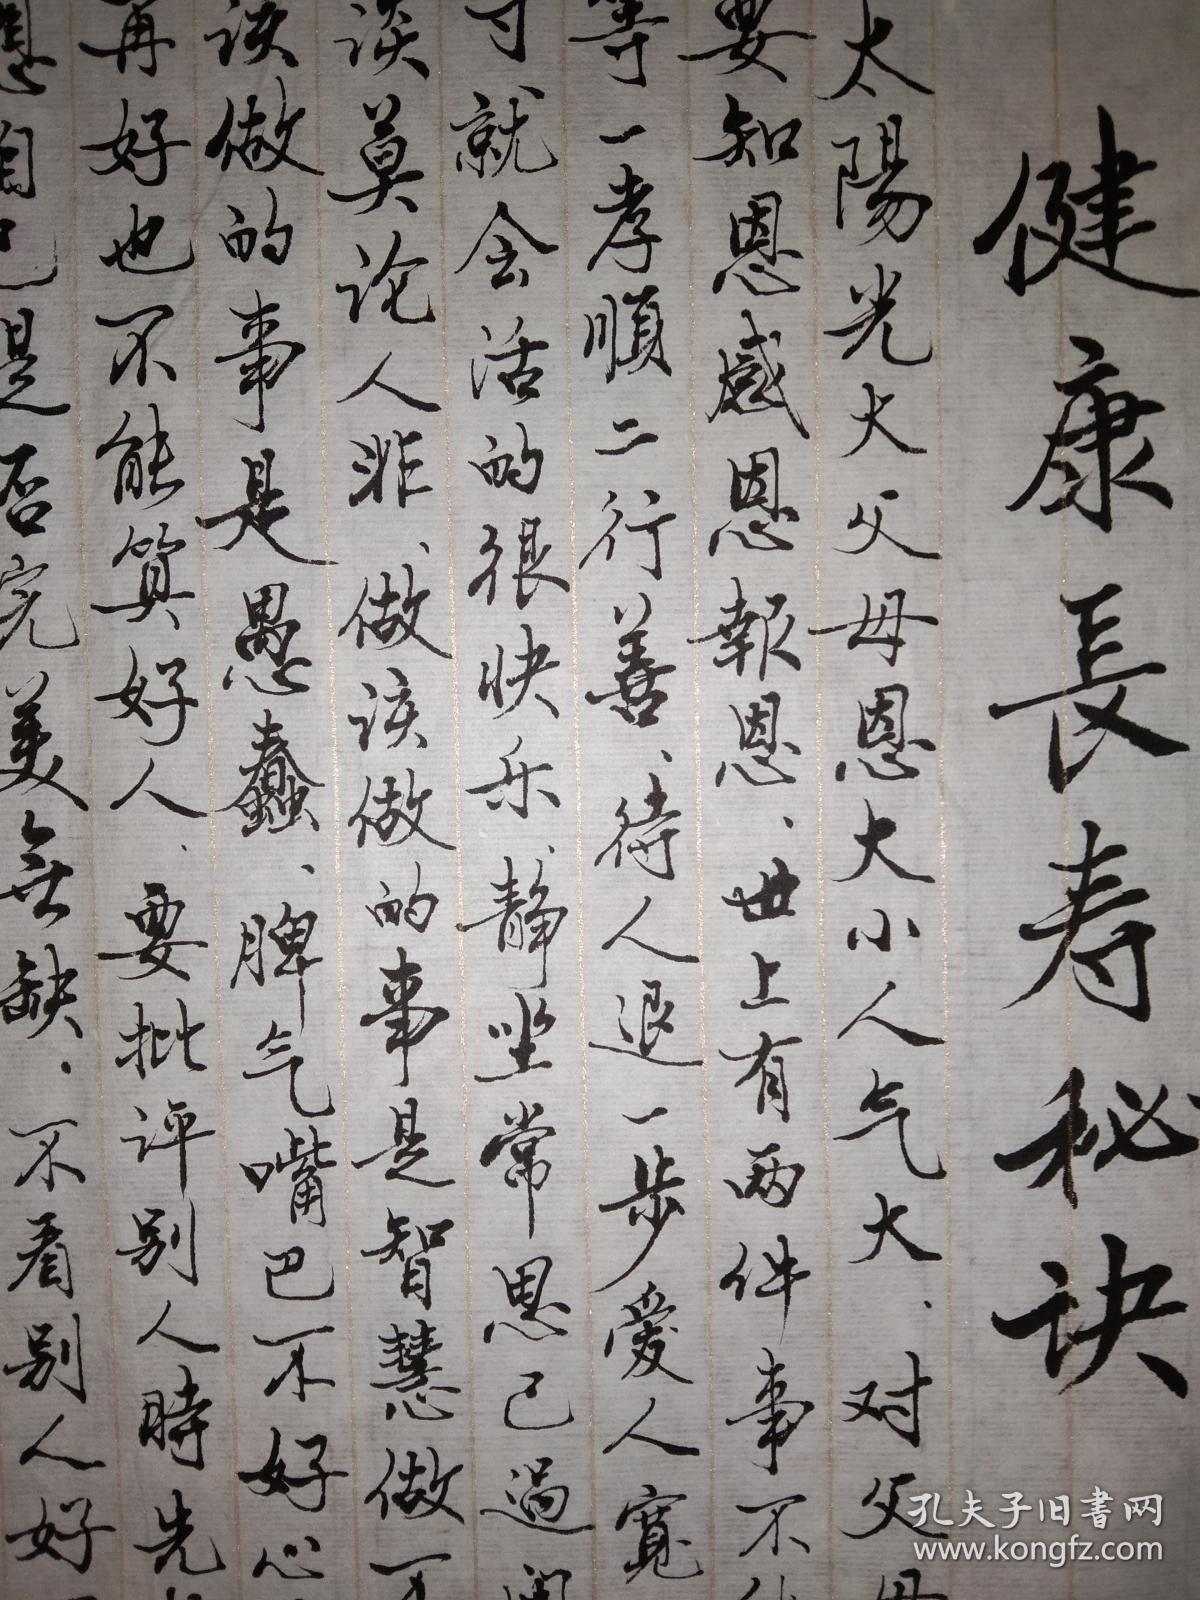 健康長寿秘诀
太陽光大父母恩大小人气大、对父母
要知恩感恩報恩、世上有两件事不能
等一孝順二行善、待人退一步爱人寬
寸就会活的很快乐、静坐常思己过閑
谈莫论人非、做该做的事是智慧做不
该做的事是愚蠢、脾气嘴巴不好心
再好也不能算好人、要批评别人時先
想自己是否完美无缺、不看别人好
孔夫子旧書网
www.kongfz.com